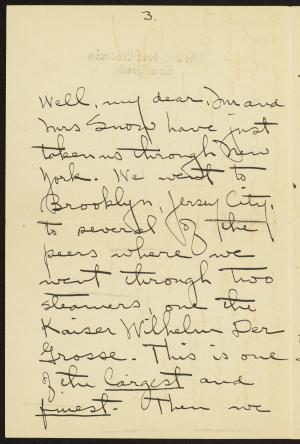 3.
Well, my dear, Mr and
Mrs Snow have just
taken us through New
York. We went to
Brooklyn, Jersey City,
to several of the
peers where we
went through two
steamers, one the
Kaiser Wilhelm Der
Grosse. This is one
of the largest and
finest. Then we